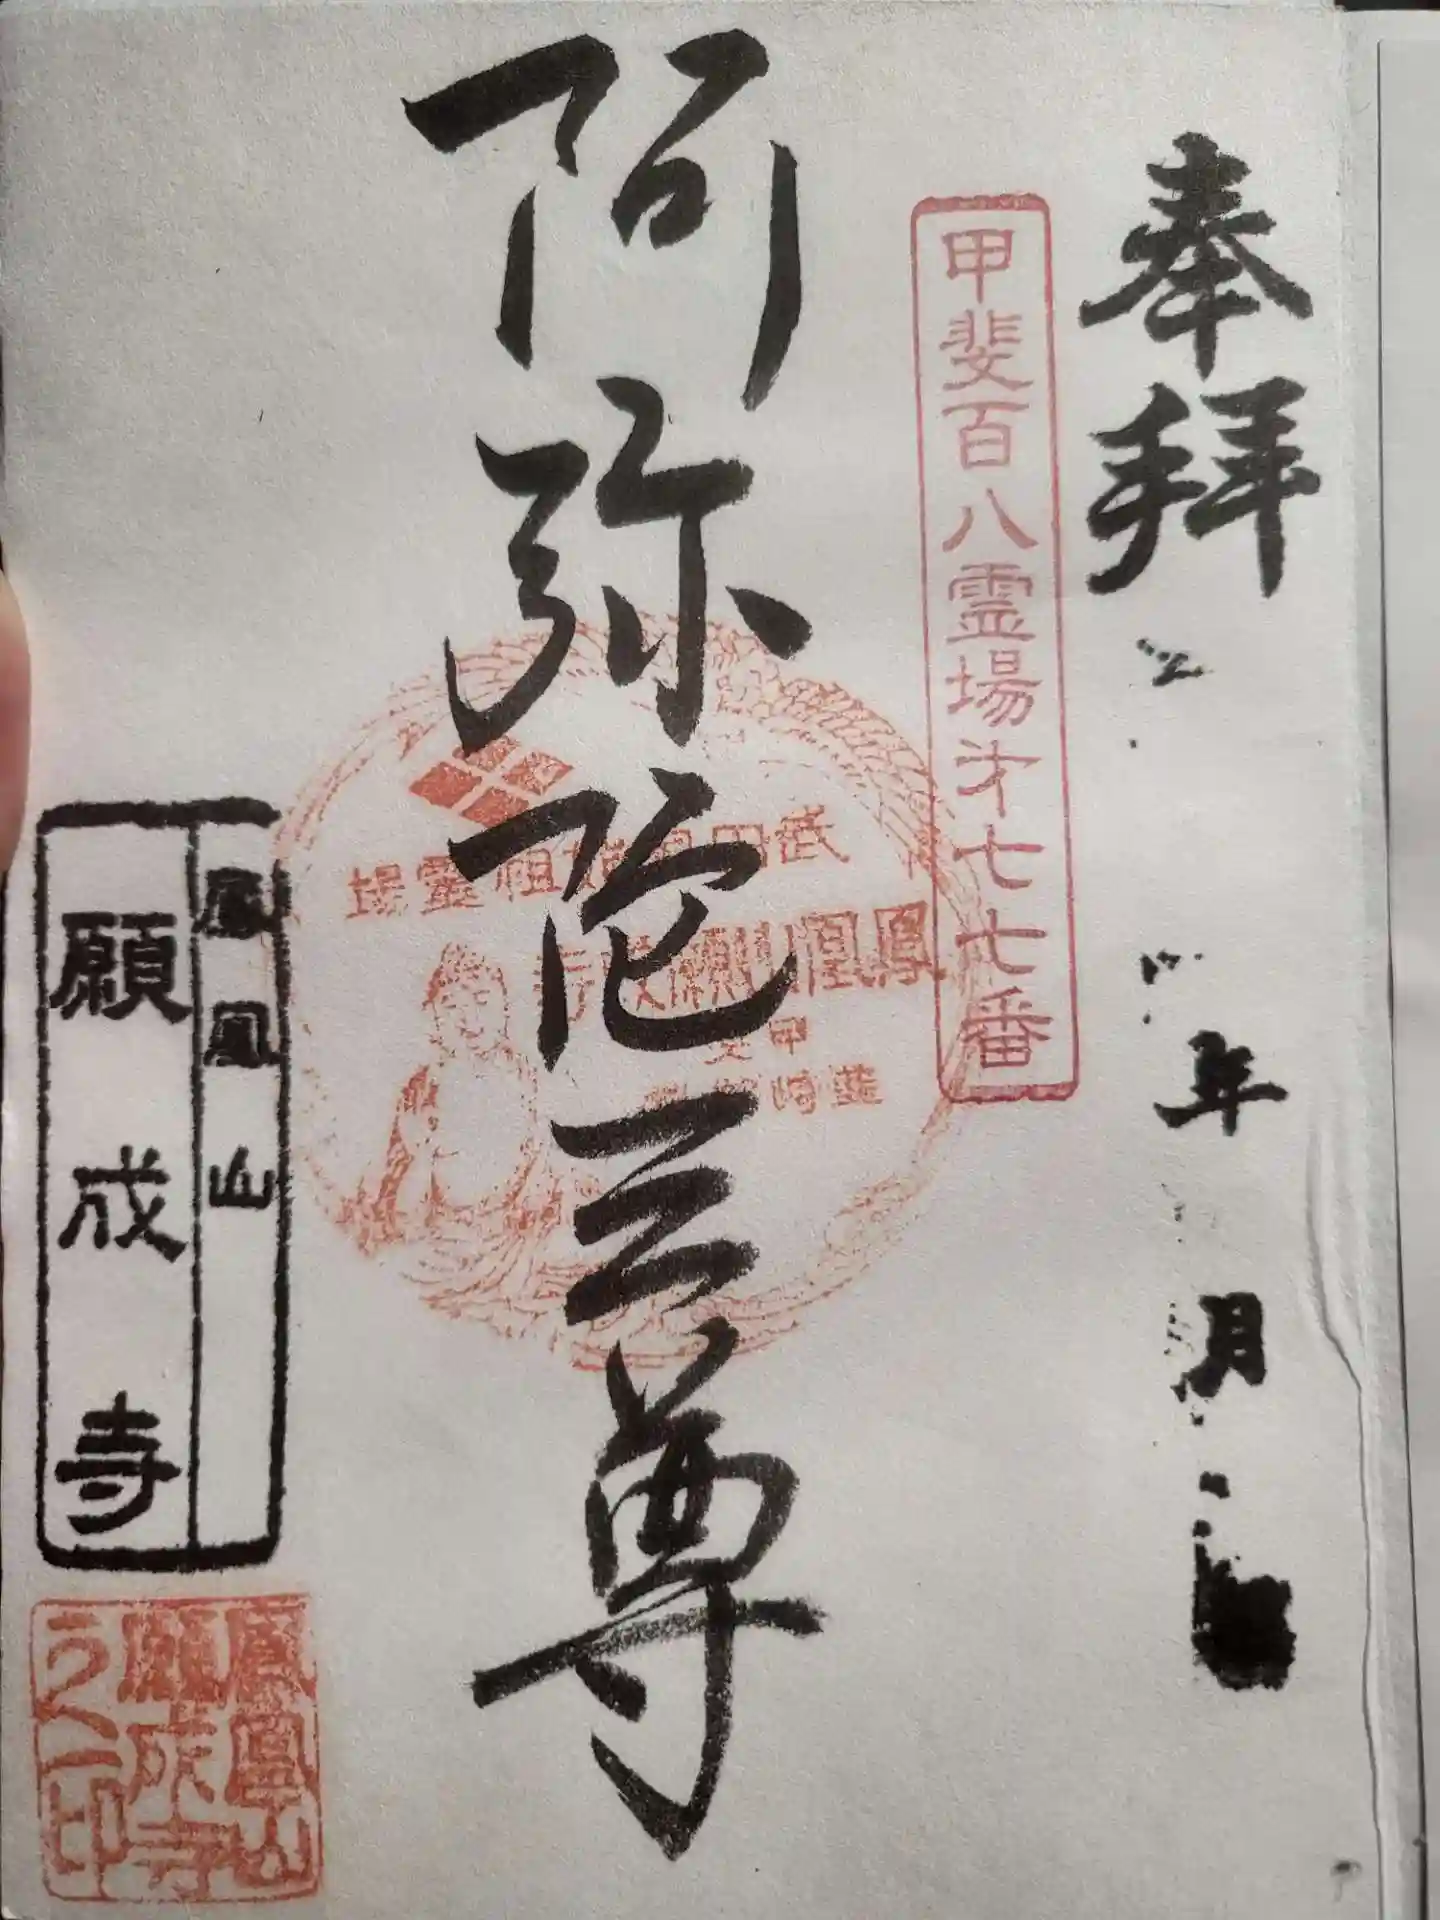 奉拝
年
月
甲斐百八霊場第七七番
阿弥陀三尊
武田
祖霊場
鳳凰山願成寺
甲斐
韮崎
鳳凰山
願成寺
鳳凰山
願成寺
之印